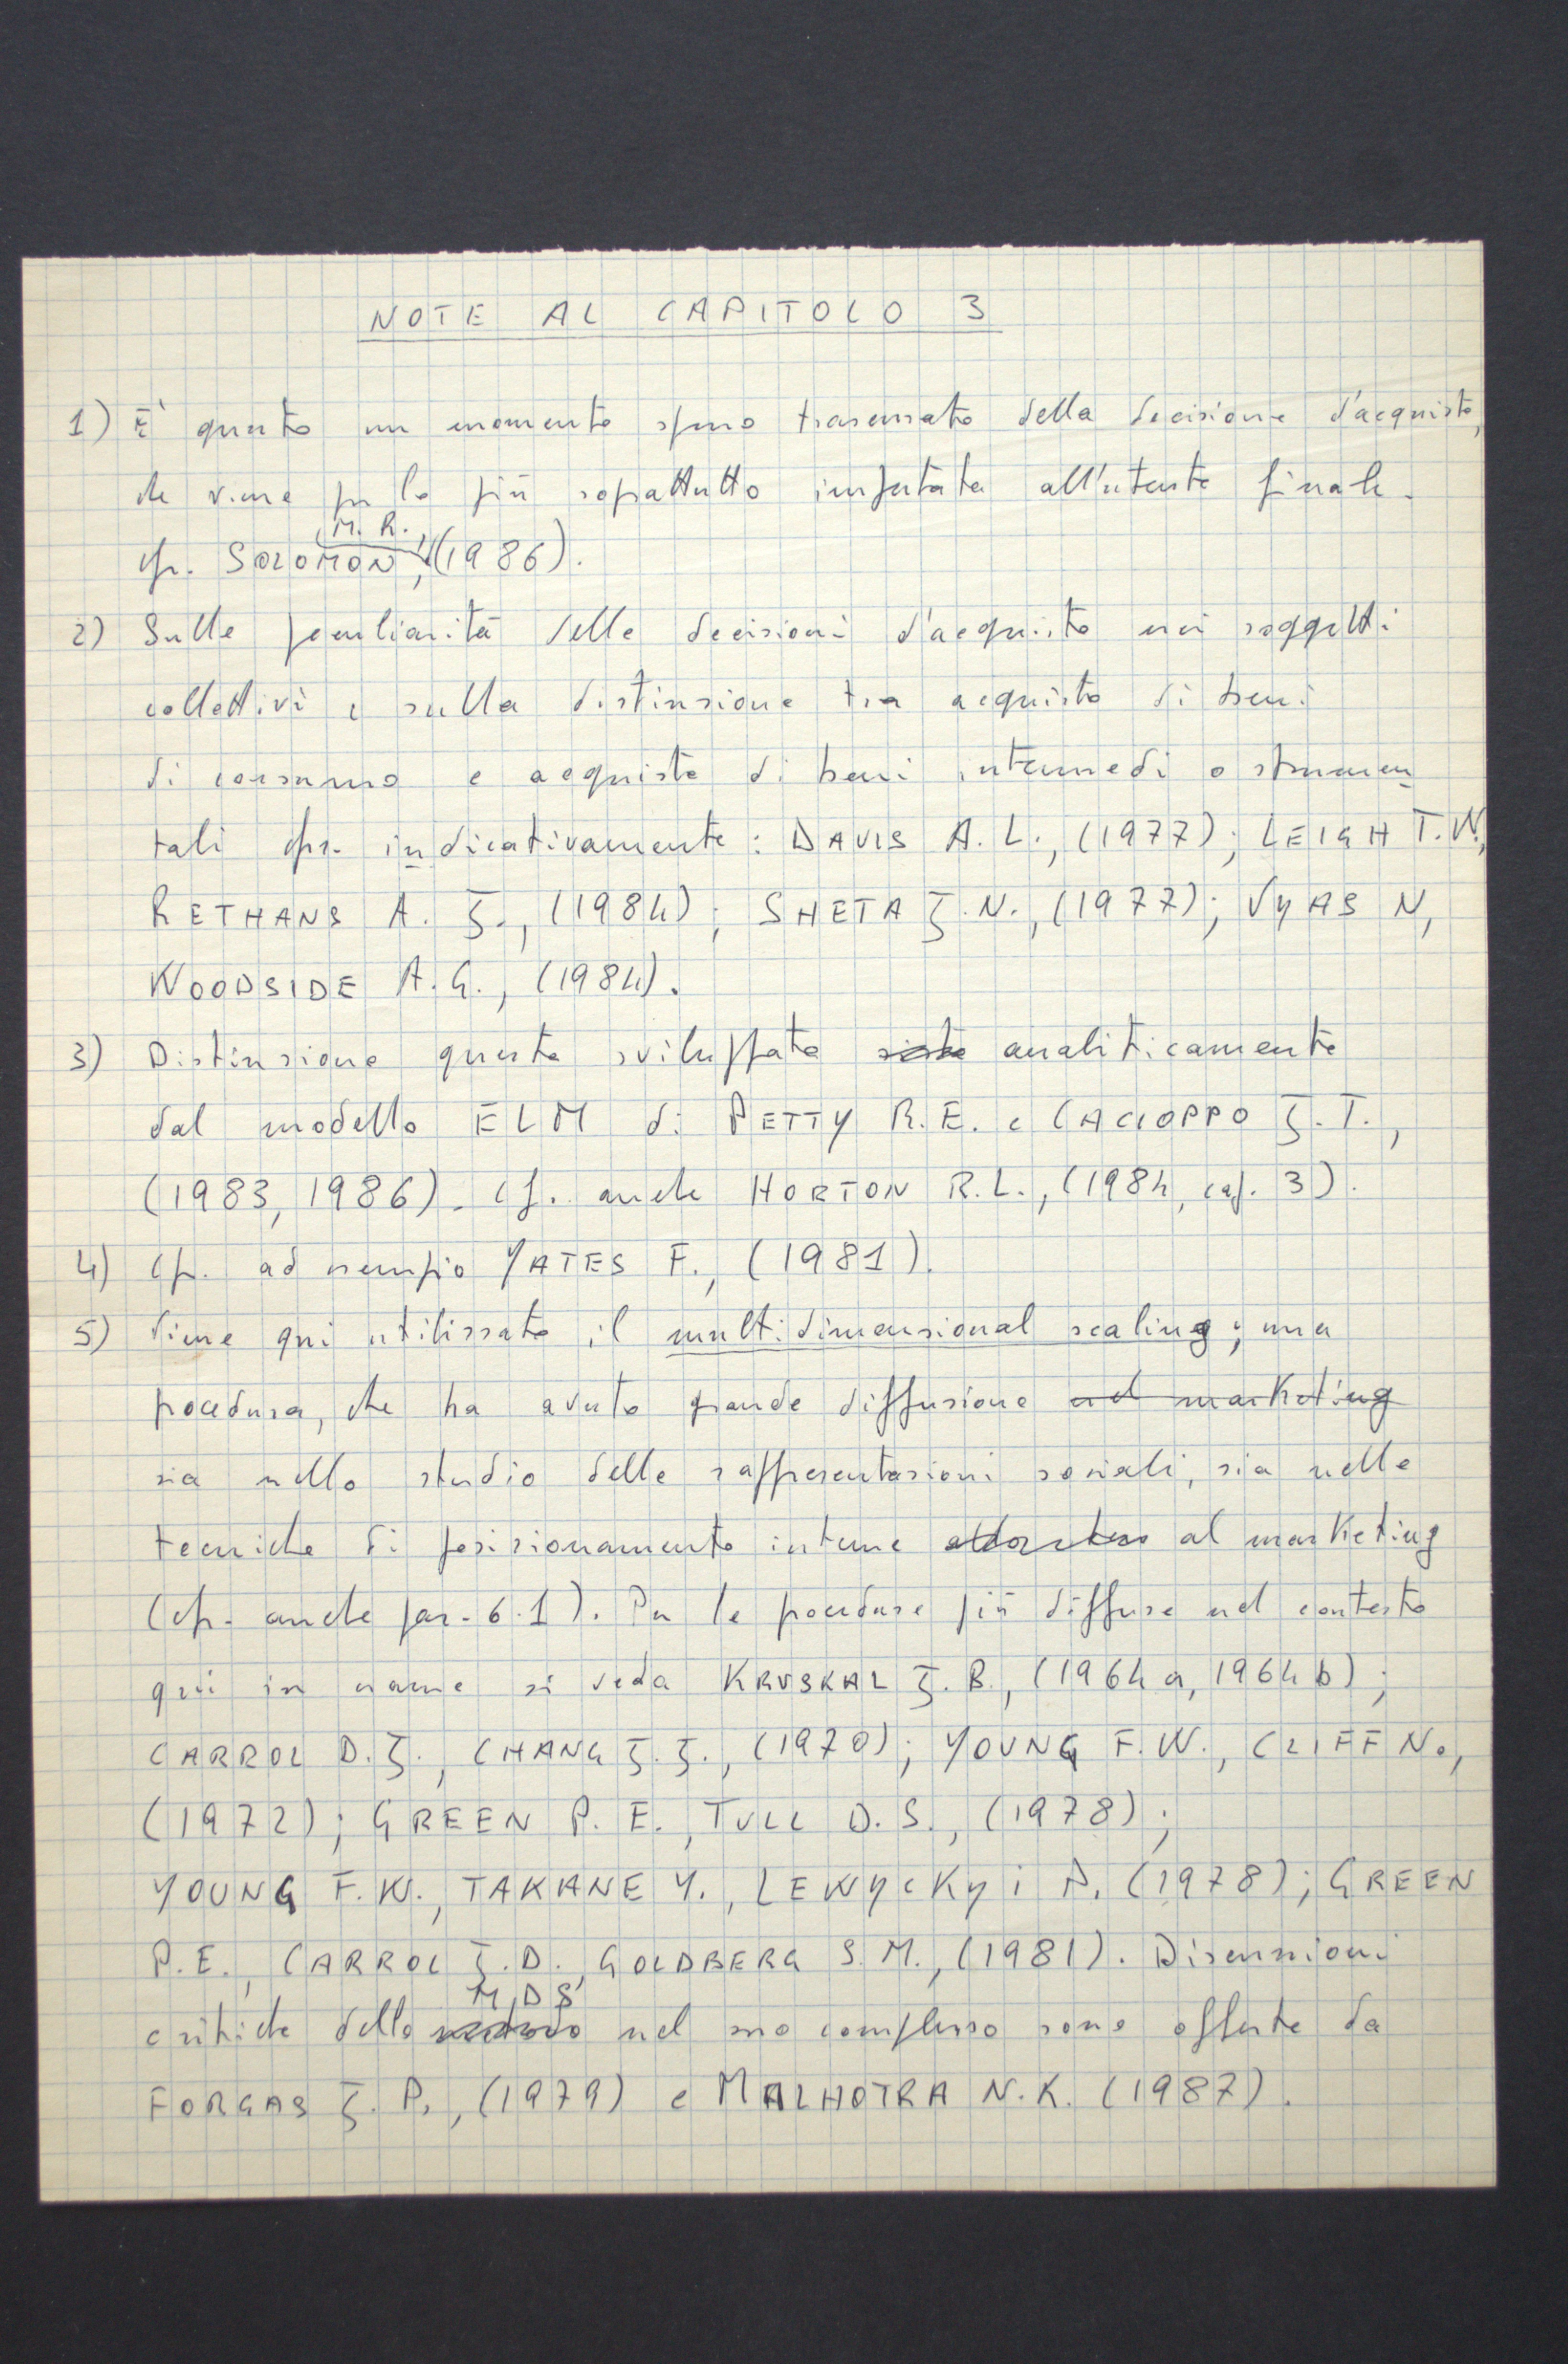 NOTE AL CAPITOLO 3
1) È questo un momento spesso trascurato della decisione d'acquisto,
che viene per lo più soprattutto imputata all'utente finale.
M. R.,
cfr. SOLOMON, (1986).
2) Sulle peculiarità delle decisioni d'acquisto nei soggetti
collettivi e sulla distinzione tra acquisto di beni
di consumo e acquisto di beni intermedi o strumen
tali cfr. indicativamente: DAVIS A. L., (1977); LEIGH T. W.,
RETHANS A. J., (1984); SHETA J. N., (1977); VYAS N,
WOODSIDE A. G., (1984).
3) Distinzione questa sviluppata analiticamente
dal modello ELM di PETTY R. E. e CACIOPPO J. T.,
(1983, 1986). Cf. anche HORTON R. L., (1984, cap. 3).
4) Cfr. ad esempio YATES F., (1981).
5) Viene qui utilizzato il multidimensional scaling; una
procedura, che ha avuto grande diffusione nel marketing
sia nello studio delle rappresentazioni sociali, sia nelle
tecniche di posizionamento interne al marketing
(cfr. anche par. 6.1). Per le procedure più diffuse nel contesto
qui in esame si veda KRUSKAL J. B., (1964 a, 1964 b);
CARROL D. J., CHANG J. J., (1970); YOUNG F. W., CLIFF N.,
(1972); GREEN P. E., TULL D. S., (1978);
YOUNG F. W., TAKANE Y., LEWYCKYJ R. (1978); GREEN
P. E., CARROL J. D., GOLDBERG S. M., (1981). Discussioni
MDS
critiche dello nel suo complesso sono offerte da
FORGAS J. P., (1979) e MALHOTRA N. K. (1987).